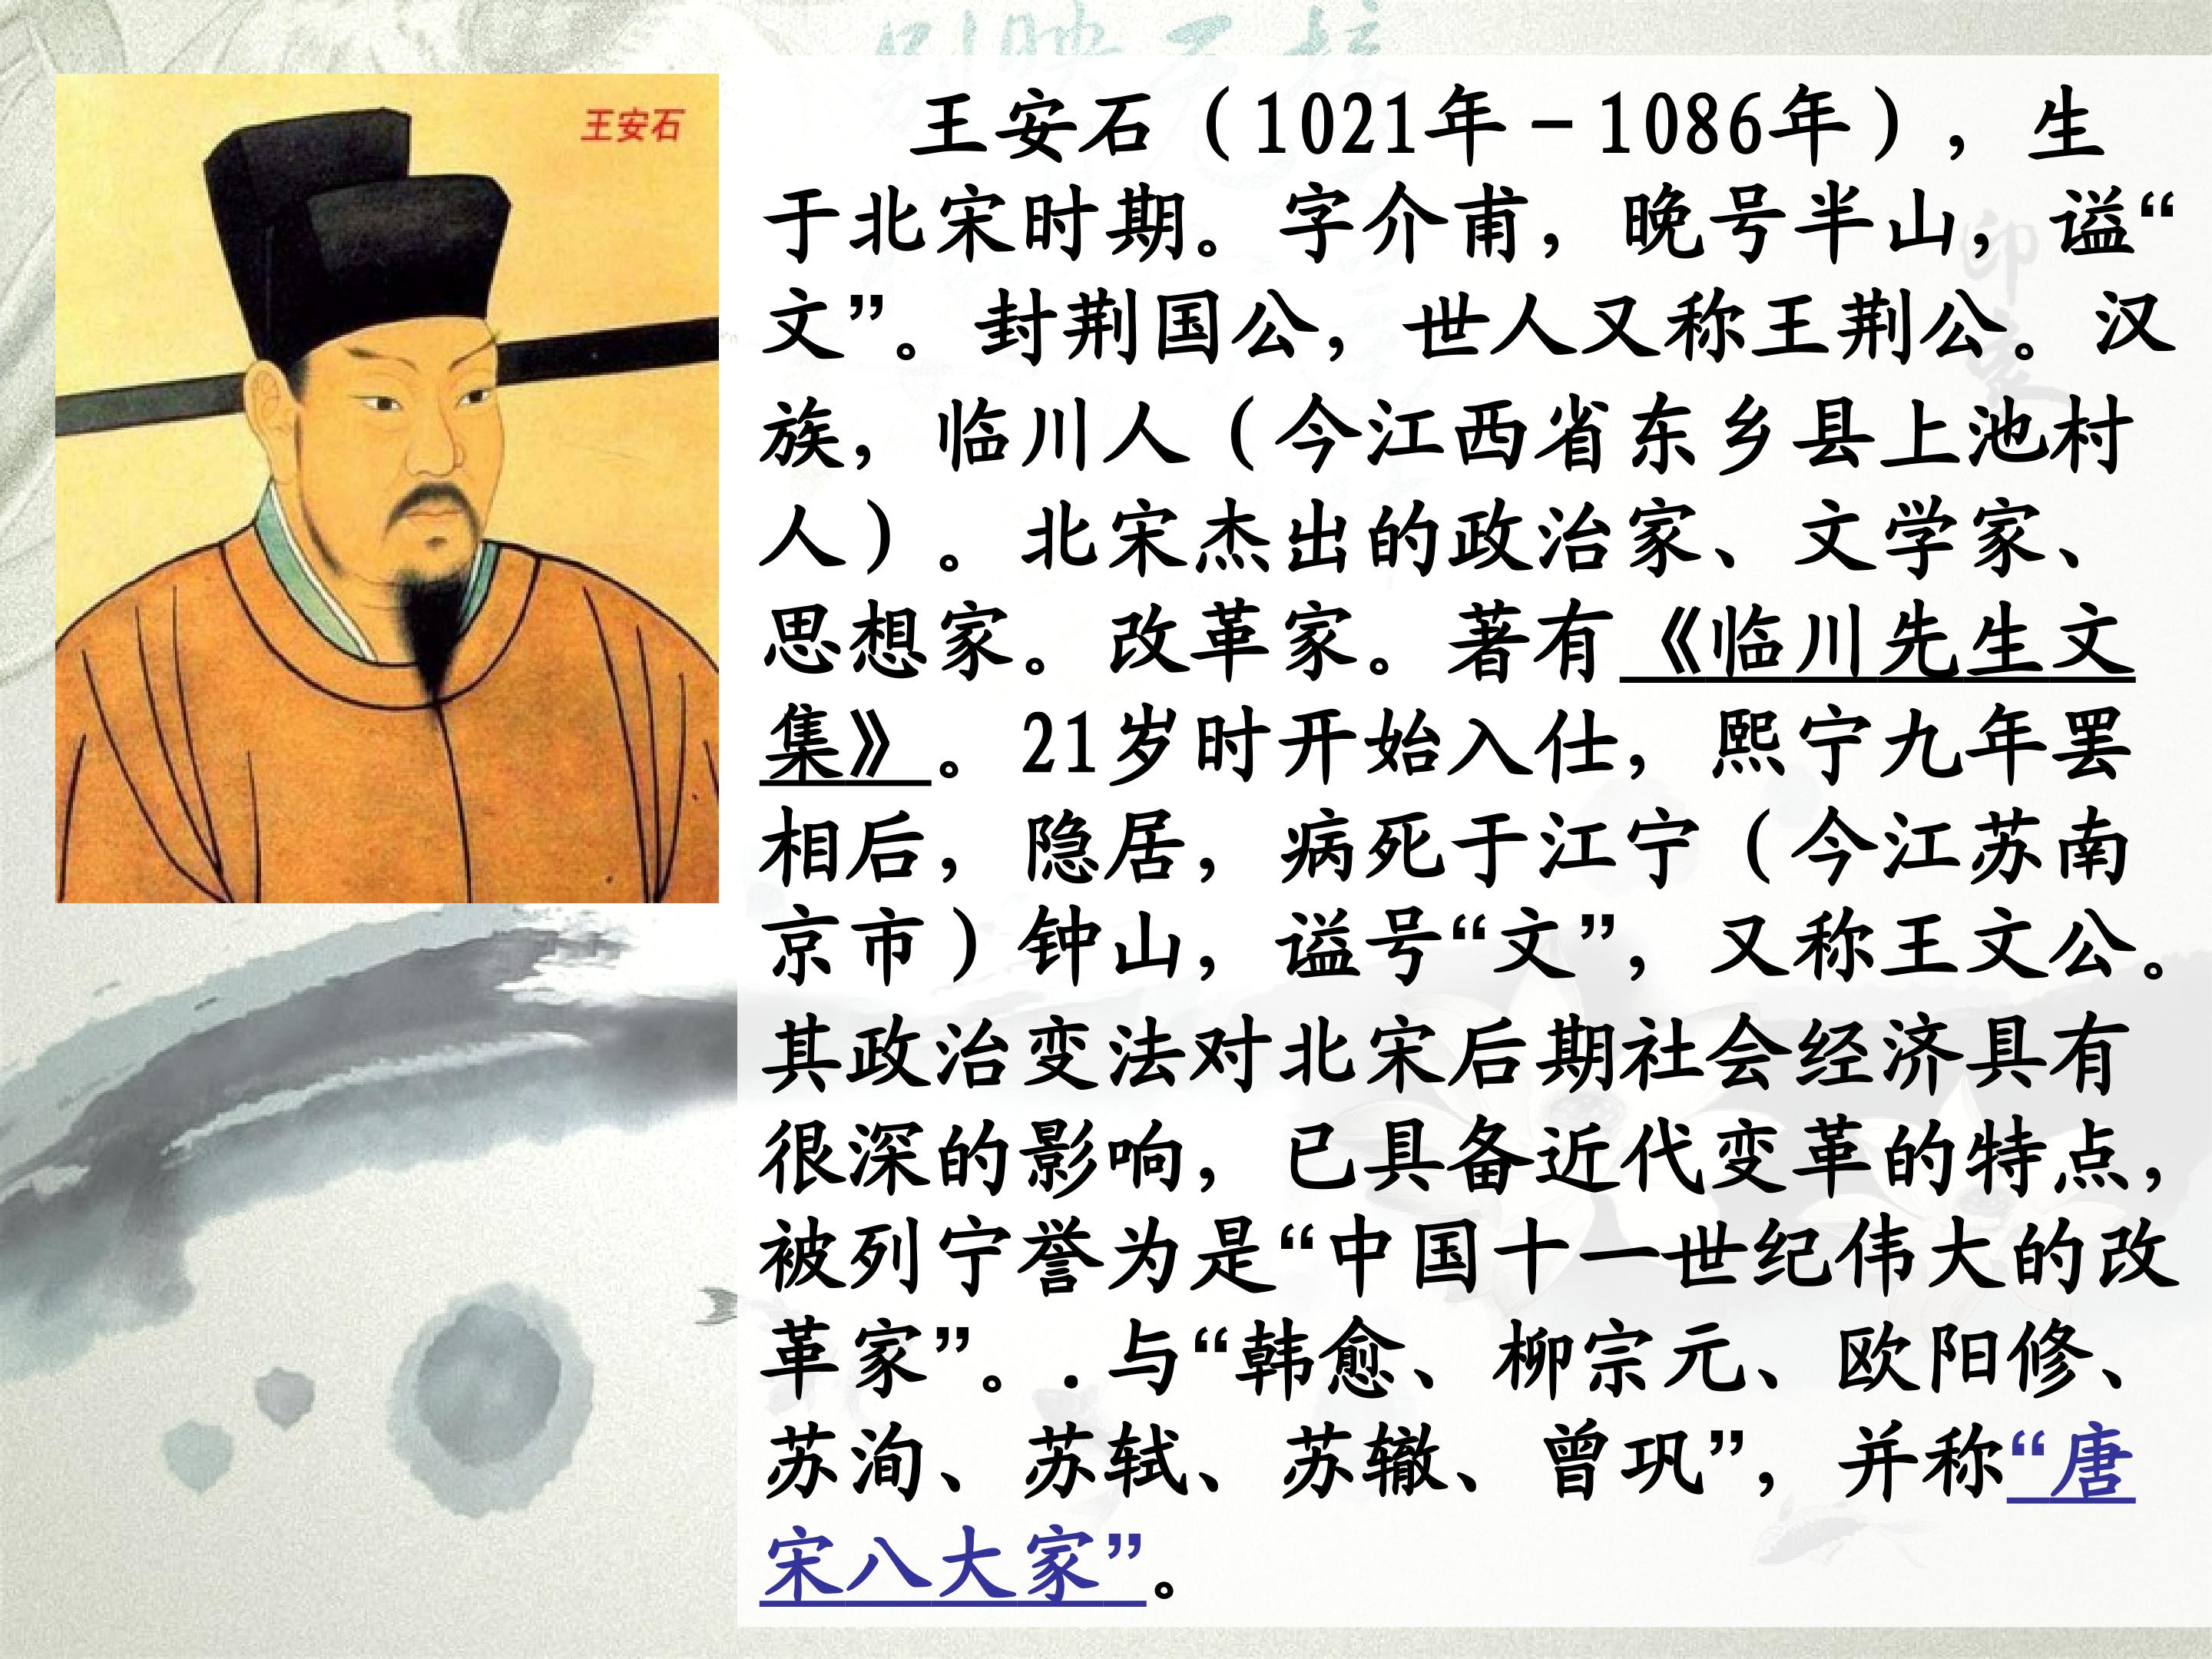 王安石
王安石（1021年－1086年），生
于北宋时期。字介甫，晚号半山，谥“
文”。封荆国公，世人又称王荆公。汉
族，临川人（今江西省东乡县上池村
人）。北宋杰出的政治家、文学家、
思想家。改革家。著有《临川先生文
集》。21岁时开始入仕，熙宁九年罢
相后，隐居，病死于江宁（今江苏南
京市）钟山，谥号“文”，又称王文公。
其政治变法对北宋后期社会经济具有
很深的影响，已具备近代变革的特点，
被列宁誉为是“中国十一世纪伟大的改
革家”。.与“韩愈、柳宗元、欧阳修、
苏洵、苏轼、苏辙、曾巩”，并称“唐
宋八大家”。